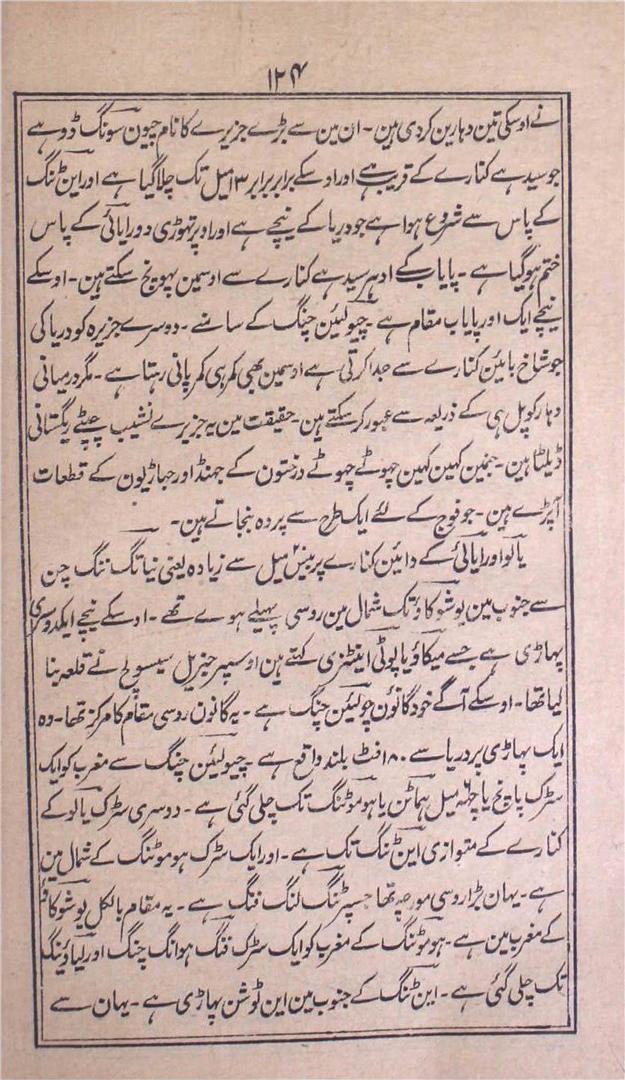 ۱۲۴
نے اوسکی تین دہارین کردی ہین - ان مین سے بڑے جزیرے کا نام جیون سونگ ڈو ہے
جو سید ہے کنارے کے قریب ہے اور اوسکے برابر برابر ۱۳ میل تک چلا گیا ہے اور این ٹنگ
کے پاس سے شروع ہوا ہے جو دریا کے نیچے ہے اور اوپر تہوڑی دور ایائی کے پاس
ختم ہو گیا ہے - پایاب کے ادہر سید ہے کنارے سے اوسمین پہونچ سکتے ہین - اوسکے
نیچے ایک اور پایاب مقام ہے چیولئین چنگ کے سامنے - دوسرے جزیرہ کو دریا کی
جو شاخ بائین کنارے سے جدا کرتی ہے اوسمین بھی کمر ہی کمر پانی رہتا ہے - مگر درمیانی
دہار کو پل ہی کے ذریعہ سے عبور کر سکتے ہین - حقیقت مین یہ جزیرے نشیب چپٹے ریگستانی
ڈیلٹا ہین - جنمین کہین کہین چہوٹے چہوٹے درختون کے جہنڈ اور جہاڑیون کے قطعات
آپڑے ہین - جو فوج کے لئے ایک طرح سے پردہ بنجاتے ہین -
یالو اور ایائی کے دائین کنارے پر بیس ۲۰ میل سے زیادہ یعنی نیانگ ننگ چن
سے جنوب مین یوشوکاؤ تک شمال مین روسی پہیلے ہوے تھے - اوسکے نیچے ایکدوسری
پہاڑی ہے جسے میکاؤ یا پوٹی اینٹزی کہتے ہین اوسپر جنریل سیسولچ نے قلعہ بنا
لیا تھا - اوسکے آگے خود گانؤن چولئین چنگ ہے - یہ گانون روسی مقام کا مرکز تھا - وہ
ایک پہاڑی پر دریا سے ۱۸۰ فٹ بلند واقع ہے - چیولئین چنگ سے مغرب کو ایک
سڑک پانچ یا چہہ میل ہماٹن یا ہوموٹنگ تک چلی گئی ہے - دوسری سڑک یالو کے
کنارے کے متوازی این ٹنگ تک ہے - اور ایک سڑک ہوموٹنگ کے شمال مین
ہے - یہان بڑا روسی مورچہ تھا جسپر ٹنگ لنگ فنگ ہے - یہ مقام بالکل یوشوکاؤ
کے مغرب مین ہے - ہوموٹنگ کے مغرب کو ایک سڑک فنگ ہوانگ چنگ اور لیاؤینگ
تک چلی گئی ہے - این ٹنگ کے جنوب مین این ٹوشن پہاڑی ہے - یہان سے